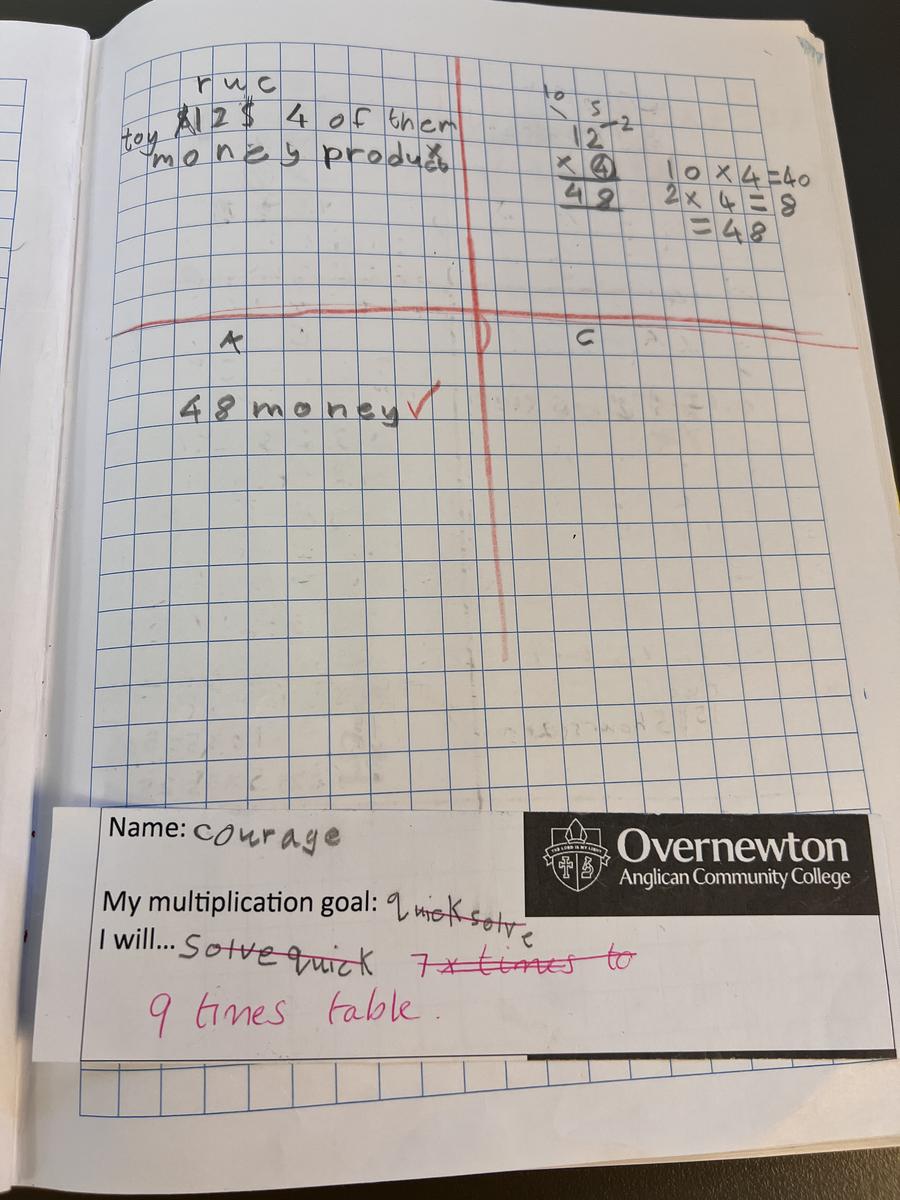 ruc
toy 12$ 4 of them
money product
10 5
12 -2
x 4
48
10 x 4 = 40
2 x 4 = 8
= 48
A
C
48 money ✓
Name: courage
My multiplication goal: quick solve
I will... Solve quick 7x times to
9 times table.
THE LORD IS MY LIGHT
Overnewton
Anglican Community College